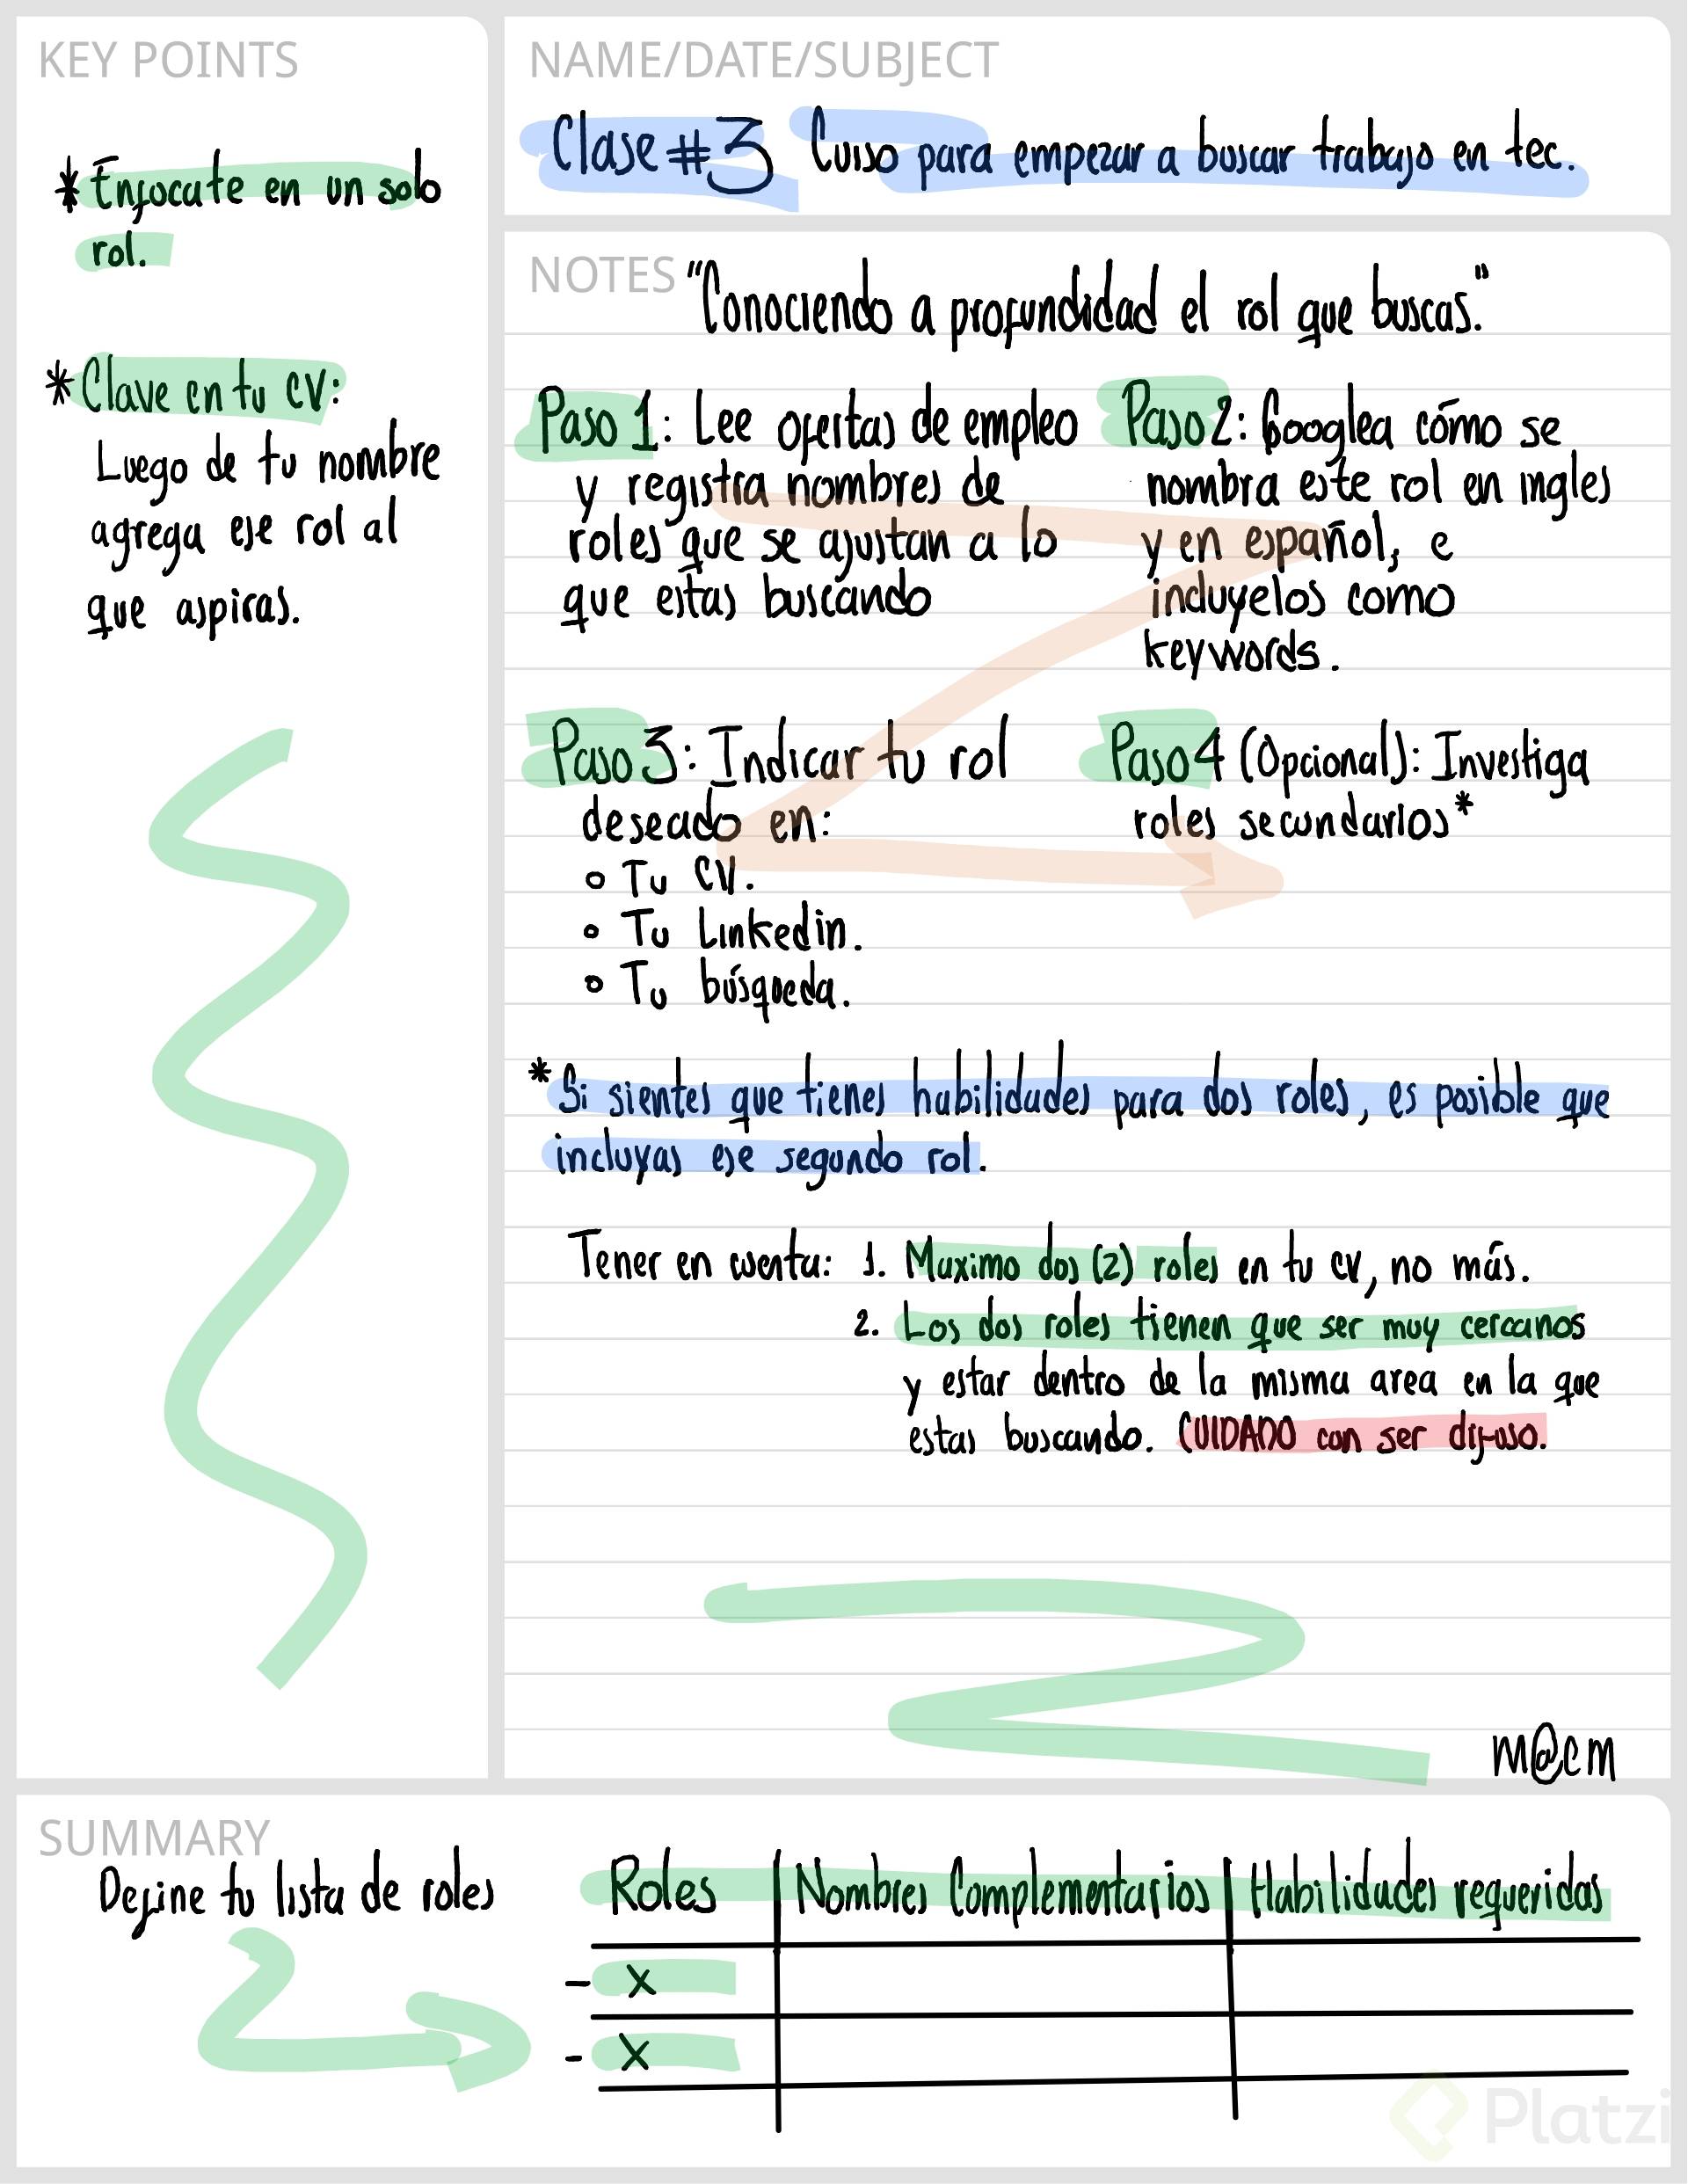 KEY POINTS
* Enfocate en un solo
rol.
* Clave en tu CV:
Luego de tu nombre
agrega ese rol al
que aspiras.
NAME/DATE/SUBJECT
Clase #3 Curso para empezar a buscar trabajo en tec.
NOTES "Conociendo a profundidad el rol que buscas."
Paso 1: Lee ofertas de empleo
y registra nombres de
roles que se ajustan a lo
que estas buscando
Paso 2: Googlea cómo se
nombra este rol en ingles
y en español, e
incluyelos como
keywords.
Paso 3: Indicar tu rol
deseado en:
o Tu CV.
o Tu Linkedin.
o Tu búsqueda.
Paso 4 (Opcional): Investiga
roles secundarios*
* Si sientes que tienes habilidades para dos roles, es posible que
incluyas ese segundo rol.
Tener en cuenta: 1. Maximo dos (2) roles en tu cv, no más.
2. Los dos roles tienen que ser muy cercanos
y estar dentro de la misma area en la que
estas buscando. CUIDADO con ser difuso.
m@cm
SUMMARY
Define tu lista de roles
Roles | Nombres Complementarios | Habilidades requeridas
- x
- x
Platzi